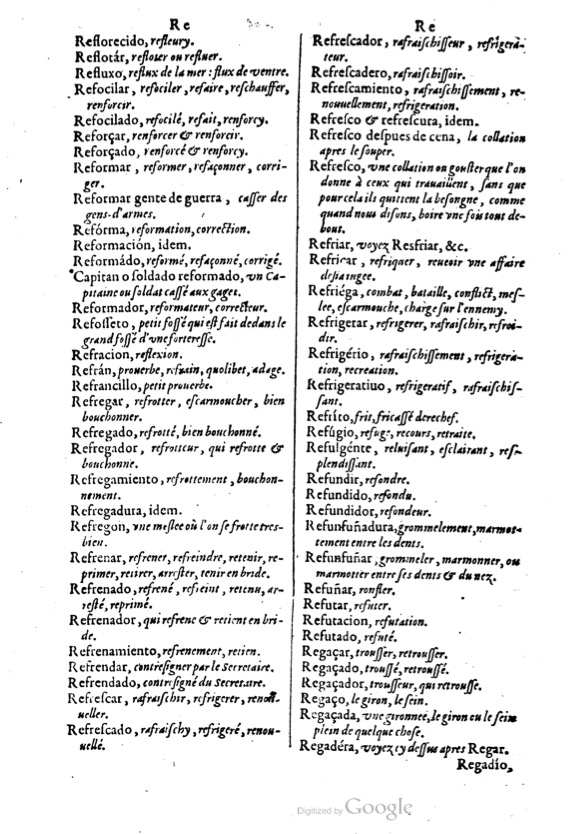 Re
Refloreçido, refleury.
Reflotár, reflotter ou refluer.
Refluxo, reflux de la mer : flux de ventre.
Refocilar, refociler, refaire, reſchauffer,
renforcir.
Refocilado, refocilé, refait, renforcy.
Reforçar, renforcer & renforcir.
Reforçado, renforcé & renforcy.
Reformar, reformer, refaçonner, corri-
ger.
Reformar gente de guerra, caſſer des
gens-d'armes.
Refórma, reformation, correction.
Reformación, idem.
Reformádo, reformé, refaçonné, corrigé.
Capitan o ſoldado reformado, vn Ca-
pitaine ou ſoldat caſſé aux gages.
Reformador, reformateur, correcteur.
Refoſſeto, petit foſſé qui eſt fait dedans le
grand foſſé d'vne fortereſſe.
Refracion, reflexion.
Refrán, prouerbe, refrain, quolibet, adage.
Refrancillo, petit prouerbe.
Refregar, refrotter, eſcarmoucher, bien
bouchonner.
Refregado, refrotté, bien bouchonné.
Refregador, refrotteur, qui refrotte &
bouchonne.
Refregamiento, refrottement, bouchon-
nement.
Refregadura, idem.
Refregon, vne meſlee où l'on ſe frotte tres-
bien.
Refrenar, refrener, refreindre, retenir, re-
primer, retirer, arreſter, tenir en bride.
Refrenado, refrené, refreint, retenu, ar-
reſté, reprimé.
Refrenador, qui refrene & retient en bri-
de.
Refrenamiento, refrenement, retien.
Refrendar, contreſigner par le Secretaire.
Refrendado, contreſigné du Secretaire.
Refreſcar, rafraiſchir, refrigerer, renou-
ueller.
Refreſcado, rafraiſchy, refrigeré, renou-
uellé.
Re
Refreſcador, rafraiſchiſſeur, refrigera-
teur.
Refreſcadero, rafraiſchiſſoir.
Refreſcamiento, rafraiſchiſſement, re-
nouuellement, refrigeration.
Refreſco & refreſcura, idem.
Refreſco deſpues de cena, la collation
apres le ſouper.
Refreſco, vne collation ou gouſter que l'on
donne à ceux qui trauaillent, ſans que
pour cela ils quittent la beſongne, comme
quand nous diſons, boire vne fois tout de-
bout.
Refriar, voyez Resfriar, &c.
Refricar, refriquer, reuoir vne affaire
deſia iugee.
Refriéga, combat, bataille, conflict, meſ-
lee, eſcarmouche, charge ſur l'ennemy.
Refrigerar, refrigerer, rafraiſchir, refroi-
dir.
Refrigério, rafraiſchiſſement, refrigera-
tion, recreation.
Refrigeratiuo, refrigeratif, rafraiſchiſ-
ſant.
Refríto, frit, fricaſſé derechef.
Refúgio, refuge, recours, retraite.
Refulgénte, reluiſant, eſclairant, reſ-
plendiſſant.
Refundir, refondre.
Refundido, refondu.
Refundidor, refondeur.
Refunfuñadura, grommelement, marmot-
tement entre les dents.
Refunfuñar, grommeler, marmonner, ou
marmotter entre ſes dents & du nez.
Refuñar, ronfler.
Refutar, refuter.
Refutacion, refutation.
Refutado, refuté.
Regaçar, trouſſer, retrouſſer.
Regaçado, trouſſé, retrouſſé.
Regaçador, trouſſeur, qui retrouſſe.
Regaço, le giron, le ſein.
Regaçada, vne gironnee, le giron ou le ſein
plein de quelque choſe.
Regadéra, voyez cy deſſus apres Regar.
Regadío,
Digitized by Google